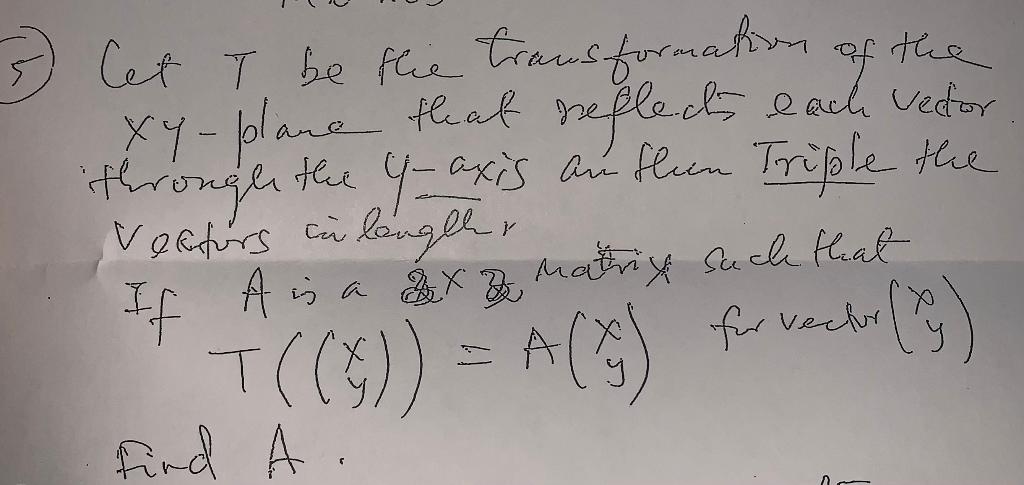 5) Let T be the transformation of the
xy-plane that reflects each vector
through the y-axis an then Triple the
vectors in length.
If A is a 2x2 matrix such that
T((x y)) = A(x y) for vector (x y)
find A.